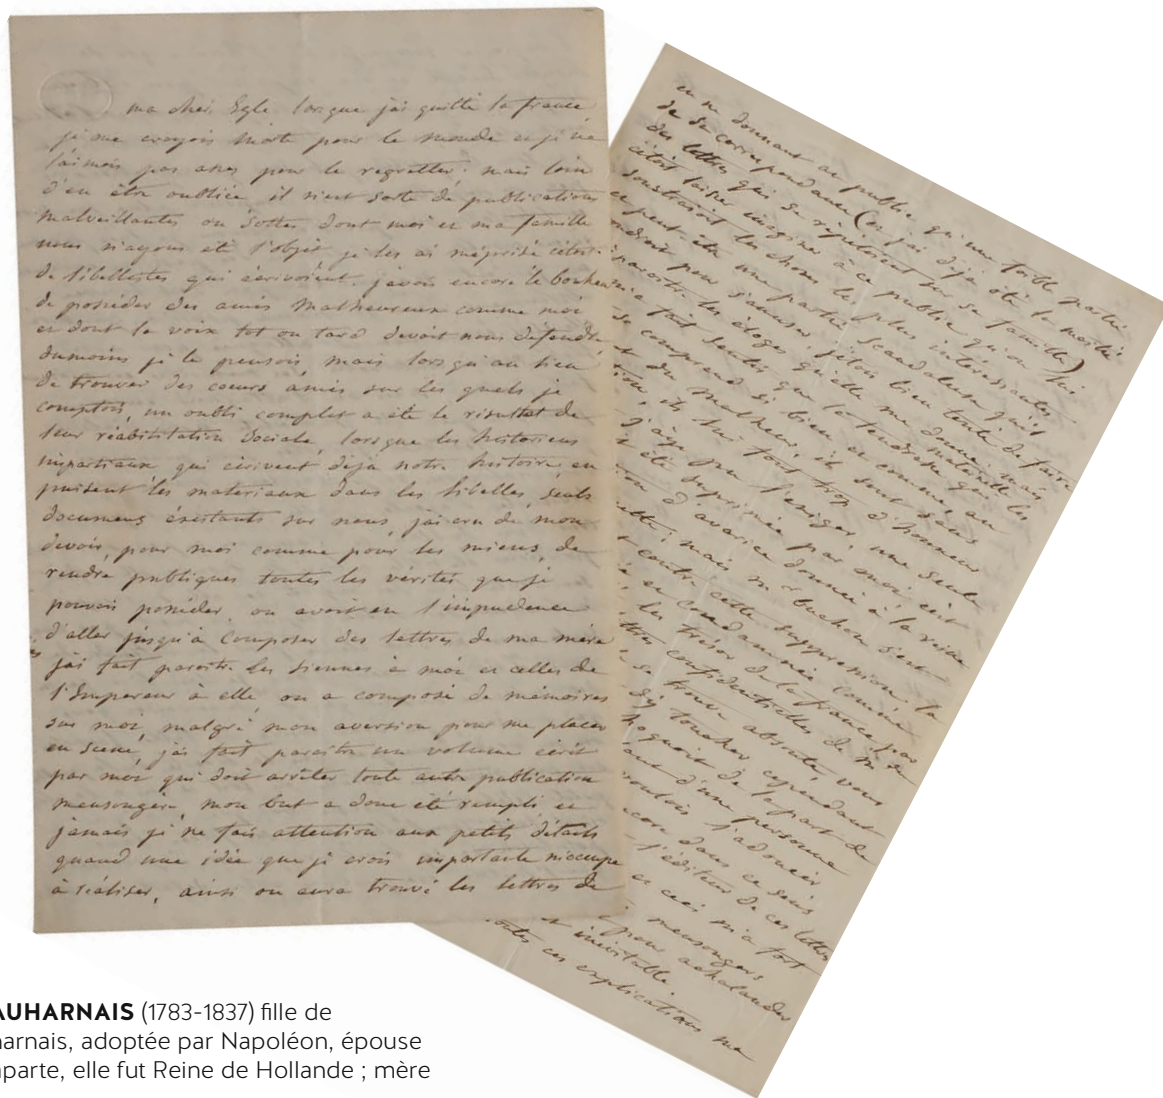 ma cher Eglé lorsque j'ai quitté la france
je me croyois morte pour le monde et je ne
l'aimois pas assez pour le regretter. mais loin
d'en être oubliée il n'est sorte de publications
malveillantes ou sottes dont moi et ma famille
nous n'ayons été l'objet je les ai méprisé c'étoit
de libellistes qui écrivoient. j'avois encore le bonheur
de posséder des amis malheureux comme moi
et dont la voix tot ou tard devoit nous defendre
dumoins je le pensois, mais lorsqu'au lieu
de trouver des coeurs amis sur les quels je
comptois, un oubli complet a été le résultat de
leur réabilitation sociale, lorsque les historiens
impartiaux qui écrivent deja notre histoire en
puisent les materiaux dans les libelles seuls
documens éxistants sur nous, j'ai cru de mon
devoir, pour moi comme pour les miens, de
rendre publiques toutes les vérités que je
pouvois posséder, on avoit eu l'impudence
d'aller jusqu'à composer des lettres de ma mère
j'ai fait paroitre les siennes à moi et celles de
l'Empereur à elle, on a composé de mémoires
sur moi, malgré mon aversion pour me placer
en scène, j'ai fait paroitre un volume écrit
par moi qui doit arrêter toute autre publication
mensongere, mon but a donc été rempli et
jamais je ne fais attention aux petits détails
quand une idée que je crois importante m'occupe
à réaliser, ainsi on aura trouvé les lettres de
en ne donnant au public qu'une foible partie
de sa correspondance (et j'ai déja ôté la moitié
des lettres qui se répétoient sur sa famille)
c'étoit laisser imaginer à ce public qu'on lui
soustraioit les choses les plus intéressantes
et peut être une partie scandaleuse qu'il
pour s'amuser, j'étois bien tentée de faire
paroitre les éloges qu'elle me donne, mais
fait sentir que la tendresse maternelle
se comprend si bien et comme, au
du malheur, il sont sans
ils lui font trop d'honneur
pu l'exiger, une seule
été suprimée par moi c'est
d'avarice donnée à la reine
mais mr buchon s'est
contre cette suppression, la
et condamnée comme
les trésor de la france par
confidentielles de me de
se trouve absente, vous
toucher cependant
de la part de
d'une personne
voulois l'adoucir
encore dans ce sens
l'éditeur de ces lettres
et ceci m'a fort
mensongers
pour achalander
inévitable.
toutes ces explications ma
AUHARNAIS (1783-1837) fille de
harnais, adoptée par Napoléon, épouse
aparte, elle fut Reine de Hollande ; mère